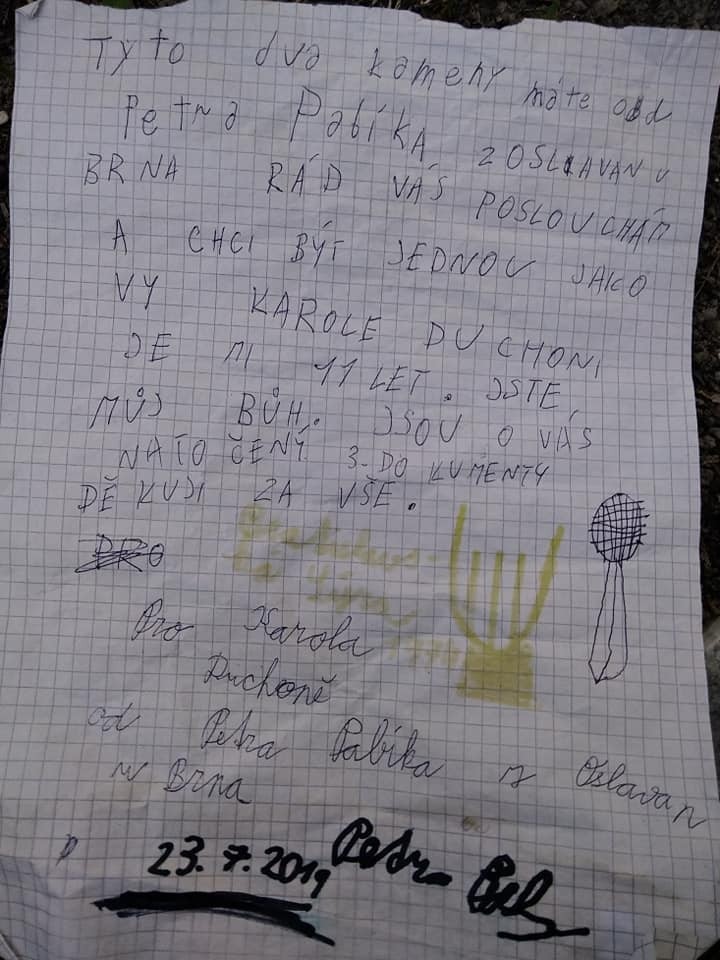 Tyto dva kameny máte od
Petra Pabíka Z OSLAVAN U
BRNA RÁD VÁS POSLOUCHÁM
A CHCI BÝT JEDNOU JAKO
VY KAROLE DUCHONI
JE MI 11 LET. JSTE
MŮJ BŮH. JSOU O VÁS
NATOČENÝ 3. DOKUMENTY
DĚKUJI ZA VŠE.
PRO
Bratislavs-
ká Lýra
Pro Karola
Duchoně
od Petra Pabíka z Oslavan
u Brna
23.7.2019 Petr